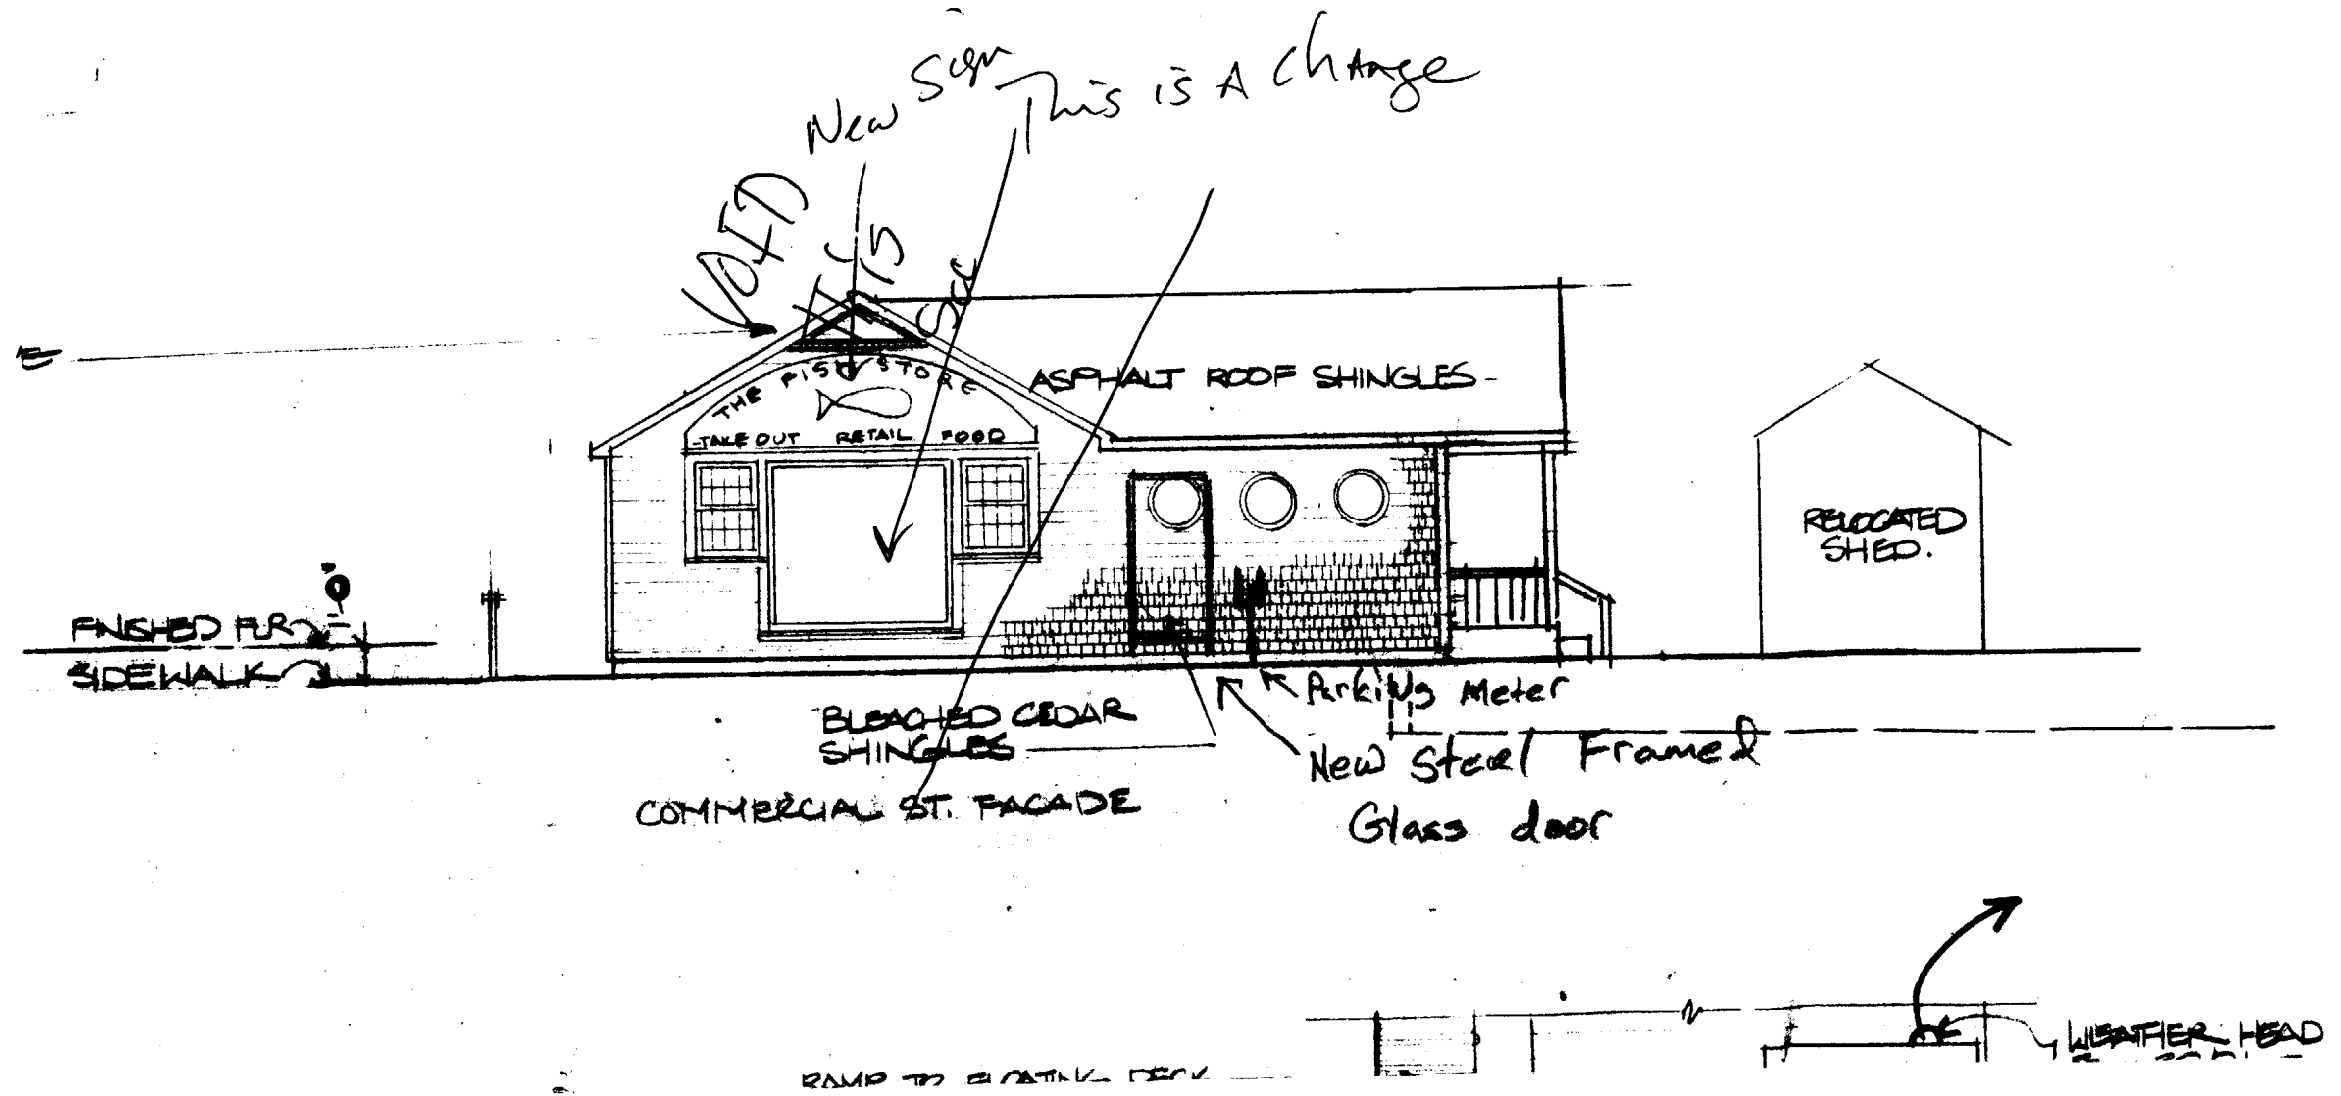 New Sign
This is A Change
VOID
THE FISH STORE
TAKE OUT RETAIL FOOD
ASPHALT ROOF SHINGLES
RELOCATED
SHED.
FINISHED FLR
SIDEWALK
Parking Meter
BLEACHED CEDAR
SHINGLES
New Steel Framed
Glass door
COMMERCIAL ST. FACADE
WEATHER HEAD
RAMP TO FLOATING DECK